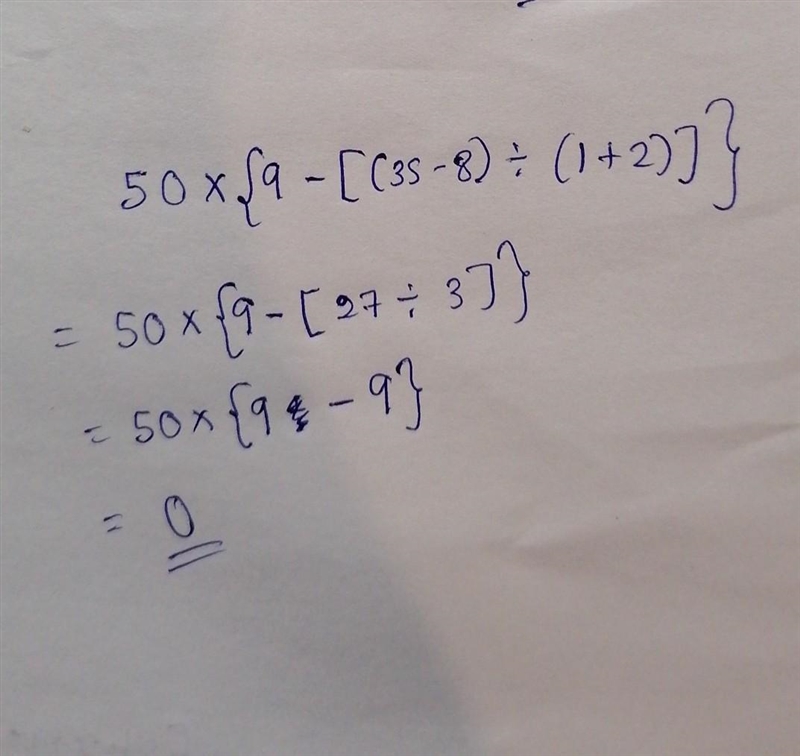 50 × {9 - [(35 - 8) ÷ (1 + 2)]}
= 50 × {9 - [27 ÷ 3]}
= 50 × {9 - 9}
= 0